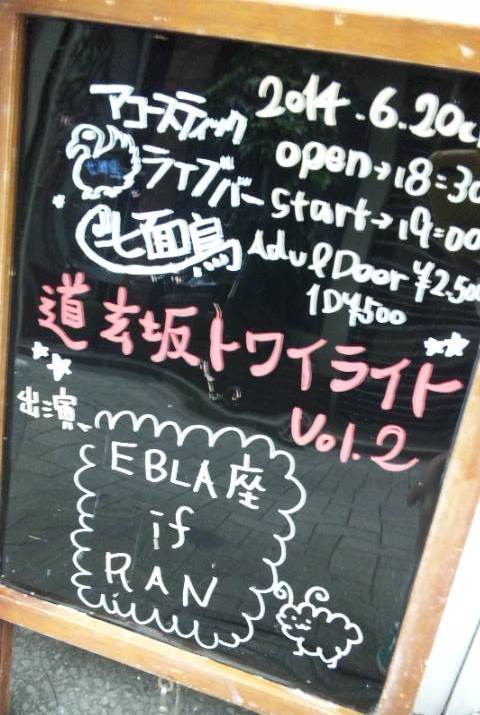 アコースティック
ライブバー
@七面鳥
七面鳥
2014.6.20
open→18:30
start→19:00
Adv&Door ¥2,500
1D¥500
道玄坂トワイライト
Vol.2
出演
EBLA座
if
RAN